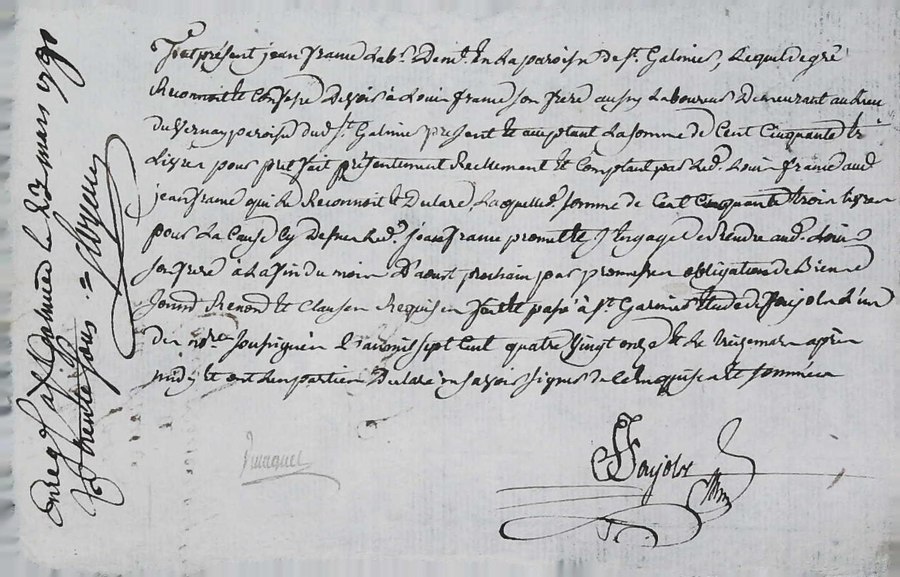 Fut présent jean frame Lab.r Dem.t En La paroisse De s.t Galmier, Lequel de gré
Reconnoit Et Confesse Devoir à Louis frame son frere aussy Laboureur Demeurant au lieu
du Vernay paroisse dud. s.t Galmier present Et acceptant La somme De Cent Cinquante
Livres pour pret fait présentement Reellement Et Comptant par Led. Louis frame aud.
jean frame qui Le Reconnoit Et Declare, Laquelle somme de Cent Cinquante trois Livres
pour La Cause Cy Dessus Led. jean frame promet Et s'Engage de Rendre aud. Louis
son frere à La fin du mois D'aoust prochain par promesse obligation de Biens
Renond Et Clauses Requises fait Et passé à s.t Galmier Etude de Poujolx L'un
des no.res soussignes L'an mil sept Cent quatre Vingt onze Et Le treize mars après
midy Et ont Les parties Declaré ne savoir signer de Ce Enquises Et sommées
Poujolx
Enreg. à s.t Galmier le 23 mars 1791
trente sous